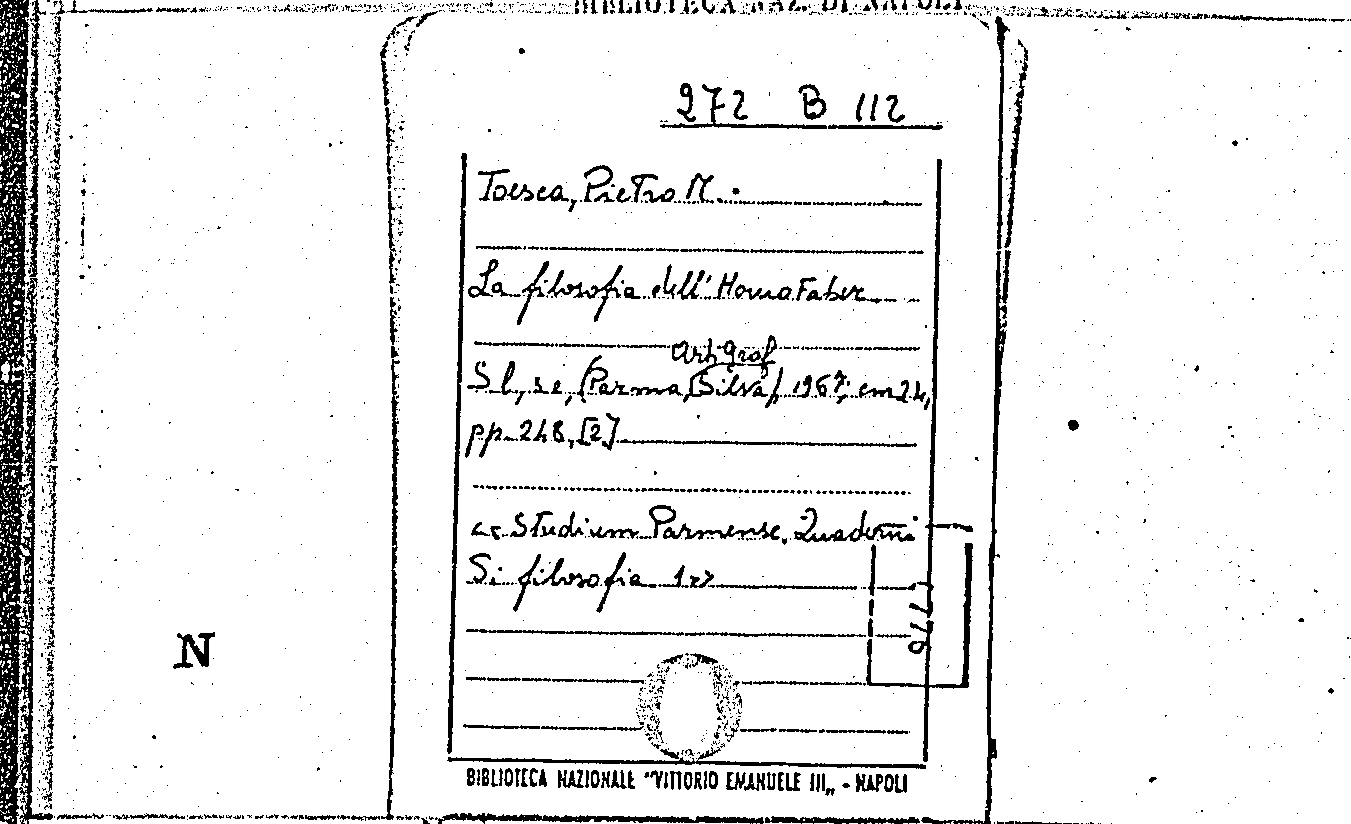 BIBLIOTECA NAZ. DI NAPOLI
272 B 112
Toesca, Pietro M.
La filosofia dell'Homo Faber
Arti graf
S l, s e, (Parma, Silva), 1967; cm 24,
pp. 248, [2]
<< Studium Parmense. Quaderni
Di filosofia 1>>
N
BIBLIOTECA NAZIONALE "VITTORIO EMANUELE III„ - NAPOLI